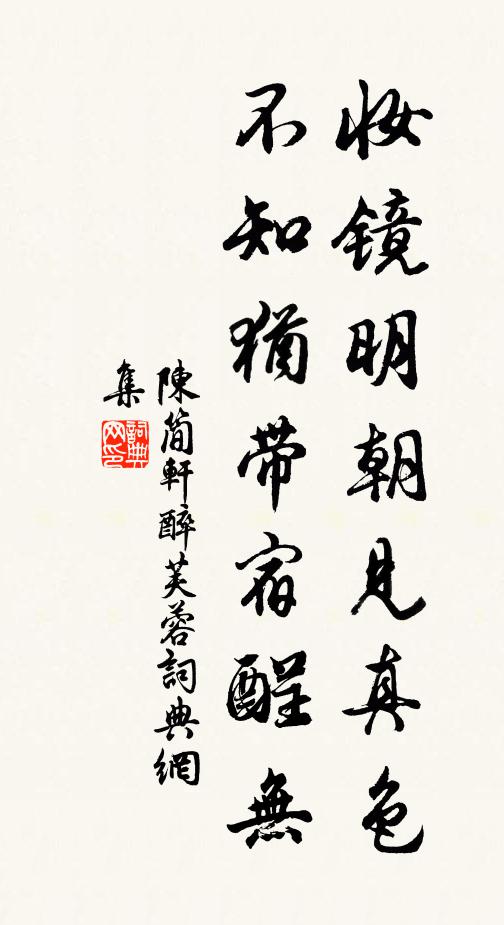 妝鏡明朝見真色
不知猶帶宿酲無
陳简軒醉芙蓉詞典網
集
詞典
网印